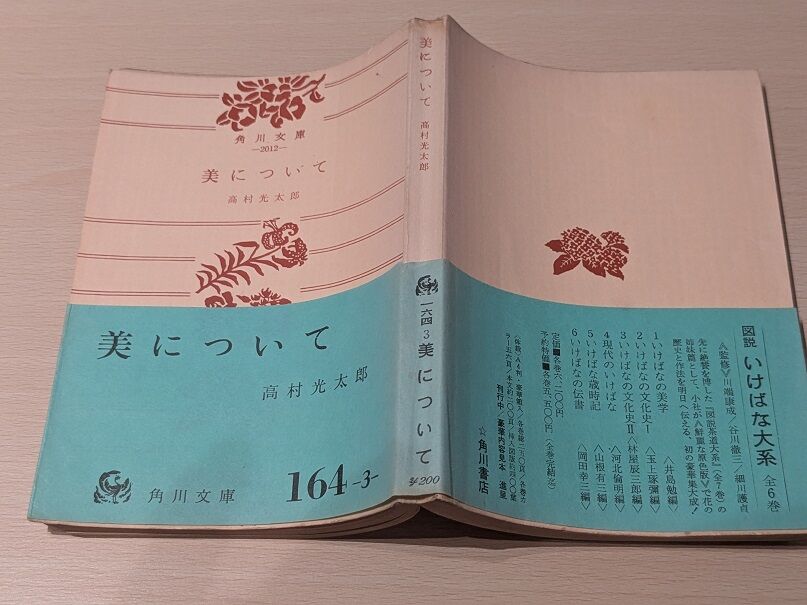 角川文庫
—2012—
美について
高村光太郎
美について
高村光太郎
角川文庫
164-3-
美について
高村光太郎
一六四
3
美について
¥200
図説 いけばな大系 全6巻
〈監修〉川端康成/谷川徹三/細川護貞
先に絶賛を博した『図説茶道大系』(全7巻)の
姉妹篇として、小社が〈鮮麗な原色版〉で花の
歴史と作法を明日へ伝える、初の豪華集大成!
1いけばなの美学 〈井島勉編〉
2いけばなの文化史Ⅰ 〈玉上琢弥編〉
3いけばなの文化史Ⅱ 〈林屋辰三郎編〉
4現代のいけばな 〈河北倫明編〉
5いけばな歳時記 〈山根有三編〉
6いけばなの伝書 〈岡田幸三編〉
定価■各巻六、二〇〇円
予約特価■各巻五、五〇〇円(全巻完結迄)
刊行中/豪華内容見本 進呈
☆角川書店